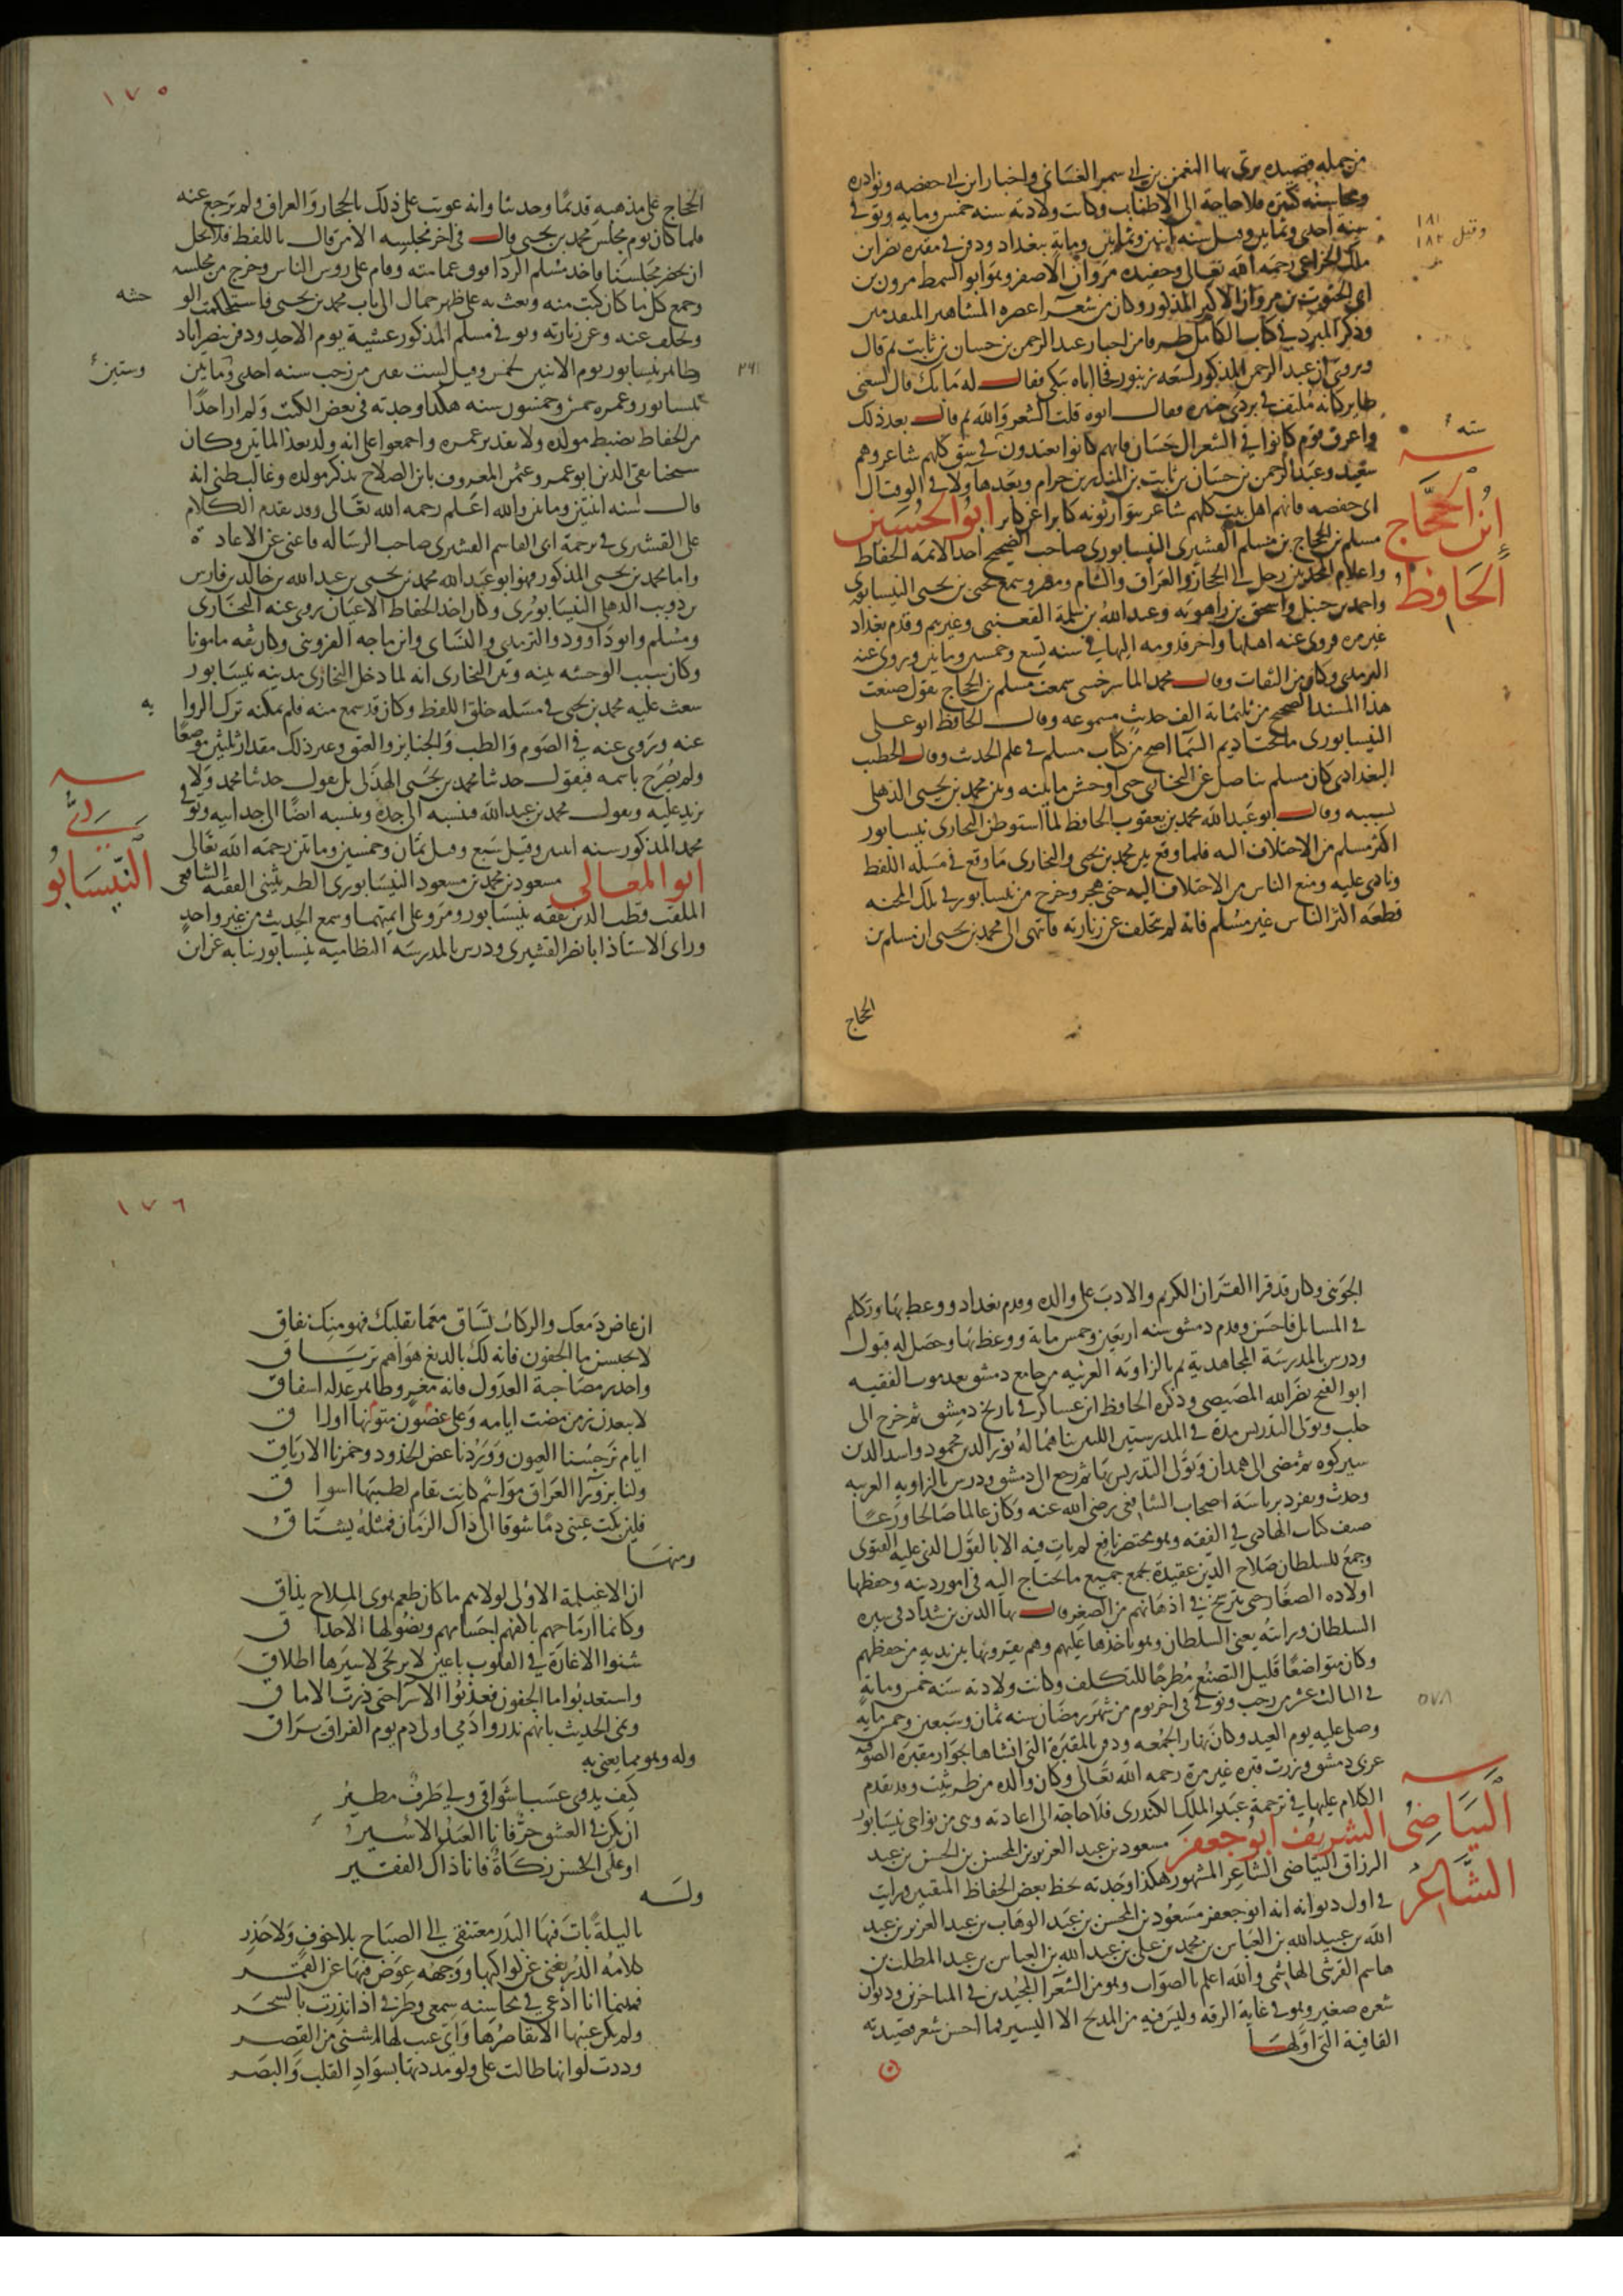 من جملة قصيده يرثى بها النعمن بن ابي سمير الغساني واخبار ابن ابي حفصه ونوادره
ومحاسنه كثيره فلا حاجة الى الاطناب وكانت ولادته سنه خمس ومايه وتوفي
سنة احدى وثمانين وقيل سنه اثنين وثمانين وماية ببغداد ودفن في مقبره نصر ابن
١٨١
وقيل ١٨٢
ملك الخزاعي رحمه الله تعالى وحفيده مروان الاصغر وهو ابو السمط مرون بن
ابي الجنوب بن مروان الاكبر المذكور وكان من شعرا عصره المشاهير المتقدمين
وذكر المبرد في كتاب الكامل طرفا من اخبار عبد الرحمن بن حسان بن ثابت ثم قال
ويروى ان عبد الرحمن المذكور لسعه زنبور فجا اباه يبكي فقال له ما بك قال لسعني
طاير كانه ملتف في بردي حبره فقال ابوه قلت الشعر والله ثم قال بعد ذلك
واعرق قوم كانوا في الشعر ال حسان فانهم كانوا يعتدون في نسق كلهم شاعر وهم
سته
سعيد وعبد الرحمن بن حسان بن ثابت بن المنذر بن حرام وبعدها ولا في الوقت ال
ابي حفصه فانهم اهل بيت كلهم شاعر يتوارثونه كابرا عن كابر ابو الحسين
ابن الحجاج
الحافظ
مسلم بن الحجاج بن مسلم القشيري النيسابوري صاحب الصحيح احد الائمه الحفاظ
واعلام المحدثين رحل الى الحجاز والعراق والشام ومصر وسمع يحيى بن يحيى النيسابوري
واحمد بن حنبل واسحق بن راهويه وعبد الله بن مسلمة القعنبي وغيرهم وقدم بغداد
غير مره فروى عنه اهلها واخر قدومه اليها في سنه تسع وخمسين ومايتين وروى عنه
الترمذي وكان من الثقات وقال محمد الماسرخسي سمعت مسلم بن الحجاج يقول صنعت
هذا المسند الصحيح من ثلثمائة الف حديث مسموعه وقال الحافظ ابو علي
النيسابوري ما تحت اديم السما اصح من كتاب مسلم في علم الحديث وقال الخطيب
البغدادي كان مسلم يناضل عن البخاري حتى اوحش ما بينه وبين محمد بن يحيى الذهلي
بسببه وقال ابو عبد الله محمد بن يعقوب الحافظ لما استوطن البخاري نيسابور
اكثر مسلم من الاختلاف اليه فلما وقع بين محمد بن يحيى والبخاري ما وقع في مسئله اللفظ
ونادى عليه ومنع الناس من الاختلاف اليه حتى هجر وخرج من نيسابور في تلك المحنه
قطعه اكثر الناس غير مسلم فانه لم يتخلف عن زيارته فانهى الى محمد بن يحيى ان مسلم بن
الحجاج
١٧٥
الحجاج على مذهبه قديمًا وحديثا وانه عوتب على ذلك بالحجاز والعراق ولم يرجع عنه
فلما كان يوم مجلس محمد بن يحيى قال في اخر مجلسه الا من قال باللفظ فلا يحل
ان يحضر مجلسنا فاخذ مسلم الردا فوق عمامته وقام على روس الناس وخرج من مجلسه
وجمع كل ما كان كتب منه وبعث به على ظهر حمال الى باب محمد بن يحيى فاستحكمت الو
حشه
وتخلف عنه وعن زيارته وتوفي مسلم المذكور عشية يوم الاحد ودفن بنصراباد
ظاهر نيسابور يوم الاثنين لخمس وقيل لست بقين من رجب سنه احدى ومايتين
وستين
٢٦١
بنيسابور وعمره خمس وخمسون سنه هكذا وجدته في بعض الكتب ولم ار احدًا
من الحفاظ يضبط مولده ولا تقدير عمره واجمعوا على انه ولد بعد المايتين وكان
شيخنا تقي الدين ابو عمرو عثمن المعروف بابن الصلاح يذكر مولده وغالب ظني انه
قال سنه اثنتين ومايتين والله اعلم رحمه الله تعالى وقد تقدم الكلام
على القشيري في ترجمة ابي القاسم القشيري صاحب الرساله فاغنى عن الاعادة
واما محمد بن يحيى المذكور فهو ابو عبد الله محمد بن يحيى بن عبد الله بن خالد بن فارس
بن ذويب الذهلي النيسابوري وكان احد الحفاظ الاعيان روى عنه البخاري
ومسلم وابو داوود والترمذي والنساي وابن ماجه القزويني وكان ثقه مامونا
وكان سبب الوحشه بينه وبين البخاري انه لما دخل البخاري مدينه نيسابور
شعث عليه محمد بن يحيى في مسئله خلق اللفظ وكان قد سمع منه فلم يمكنه ترك الروا
يه
عنه وتروى عنه في الصوم والطب والجنايز والعتق وغير ذلك مقدار ثلثين موضعًا
ولم يصرح باسمه فيقول حدثنا محمد بن يحيى الهذلي بل يقول حدثنا محمد ولا
يزيد عليه ويقول محمد بن عبد الله فنسبه الى جده وينسبه ايضًا الى جد ابيه وتوفي
محمد المذكور سنه اثنين وقيل سبع وقيل ثمان وخمسين ومايتين رحمه الله تعالى
ابو المعالي مسعود بن محمد بن مسعود النيسابوري الطريثيثي الفقيه الشافعي
النيسابو
ري
الملقب قطب الدين تفقه بنيسابور ومرو على ائمتهما وسمع الحديث من غير واحد
وراى الاستاذ ابا نصر القشيري ودرس بالمدرسه النظاميه بنيسابور نيابه عن ابن
الجويني وكان قد قرا القران الكريم والادب على والده وقدم بغداد ووعظ بها وتكلم
في المسايل فاحسن وقدم دمشق سنه اربعين وخمس ماية ووعظ بها وحصل له قبول
ودرس بالمدرسة المجاهدية ثم بالزاويه الغربيه من جامع دمشق بعد موت الفقيه
ابو الفتح نصر الله المصيصي وذكره الحافظ ابن عساكر في تاريخ دمشق ثم خرج الى
حلب وتولى التدريس مدة في المدرستين اللتين بناهما له نور الدين محمود واسد الدين
شيركوه ثم مضى الى همدان وتولى التدريس بها ثم رجع الى دمشق ودرس بالزاويه الغربيه
وحدث وتفرد برياسة اصحاب الشافعي رضي الله عنه وكان عالما صالحا ورعًا
صنف كتاب الهادي في الفقه وهو مختصر نافع لم يات فيه الا بالقول الذي عليه الفتوى
وجمع للسلطان صلاح الدين عقيدة تجمع جميع ما يحتاج اليه في امور دينه وحفظها
اولاده الصغار حتى ترسخ في اذهانهم من الصغر قال بها الدين بن شداد في سيره
السلطان ورايته يعني السلطان وهو ياخذها عليهم وهم يقرونها بين يديه من حفظهم
وكان متواضعًا قليل التصنع مطرحًا للتكلف وكانت ولادته سنه خمس وماية
في الثالث عشر من رجب وتوفي في اخر يوم من شهر رمضان سنه ثمان وسبعين وخمس مايه
٥٧٨
وصلي عليه يوم العيد وكان نهار الجمعه ودفن بالمقبرة التي انشاها بجوار مقبره الصوفيه
غربي دمشق وزرت قبره غير مرة رحمه الله تعالى وكان والده من طريثيث وقد تقدم
الكلام عليها في ترجمة عبد الملك الكندري فلا حاجة الى اعادته وهي من نواحي نيسابور
الشريف ابو جعفر مسعود بن عبد العزيز بن المحسن بن الحسن بن عبد
البياضي
الشاعر
الرزاق البياضي الشاعر المشهور هكذا وجدته بخط بعض الحفاظ المتقنين ورايت
في اول ديوانه انه ابو جعفر مسعود بن المحسن بن عبد الوهاب بن عبد العزيز بن عبد
الله بن عبيد الله بن العباس بن محمد بن علي بن عبد الله بن العباس بن عبد المطلب بن
هاشم القرشي الهاشمي والله اعلم بالصواب وهو من الشعرا المجيدين في المتاخرين وديوان
شعره صغير وهو في غاية الرقه وليس فيه من المديح الا اليسير فما احسن شعر قصيدته
القافية التي اولها
١٧٦
ان غاض دمعك والركاب تساق مع ما بقلبك فهو منك نفاق
لا تحبسن ما الجفون فانه لك يا لديغ هواهم ترياق
واحذر مصاحبة العذول فانه مغر وظاهر عذله اشفاق
لا يبعدن زمن مضت ايامه وعلى غصون متونها اوراق
ايام نرجسنا العيون ووردنا غض الخدود وخمرنا الارياق
ولنا بزورا العراق مواسم كانت تقام لطيبها اسواق
فلئن بكت عيني دمًا شوقا الى ذاك الزمان فمثله يشتاق
ومنها
اين الاغيلمة الاولى لولاهم ما كان طعم هوى الملاح يذاق
وكانما ارماحهم باكفهم اجسامهم ونصولها الاحداق
شنوا الاغارة في القلوب باعين لا يرتجى لاسيرها اطلاق
واستعذبوا ما الجفون فعذبوا الاسرا حتى ذرت الاماق
ونمى الحديث بانهم نذروا دمي اولى دم يوم الفراق يراق
وله وهو مما يغنى به
كيف يذوي عشب اشواقي ولي طرف مطير
ان يكن في العشق حر فانا العبد الاسير
او على الحسن زكاة فانا ذاك الفقير
وله
يا ليلة بات فيها البدر معتنقي الى الصباح بلا خوف ولا حذر
كلامه الدر يغني عن كواكبها ووجهه عوض فيها عن القمر
فبينما انا ادعي في محاسنه سمعي وطرفي اذ انذرت بالسحر
ولم يكن عيبها الا تقاصرها واي عيب لها اشنى من القصر
وددت لو انها طالت علي ولو مددتها بسواد القلب والبصر